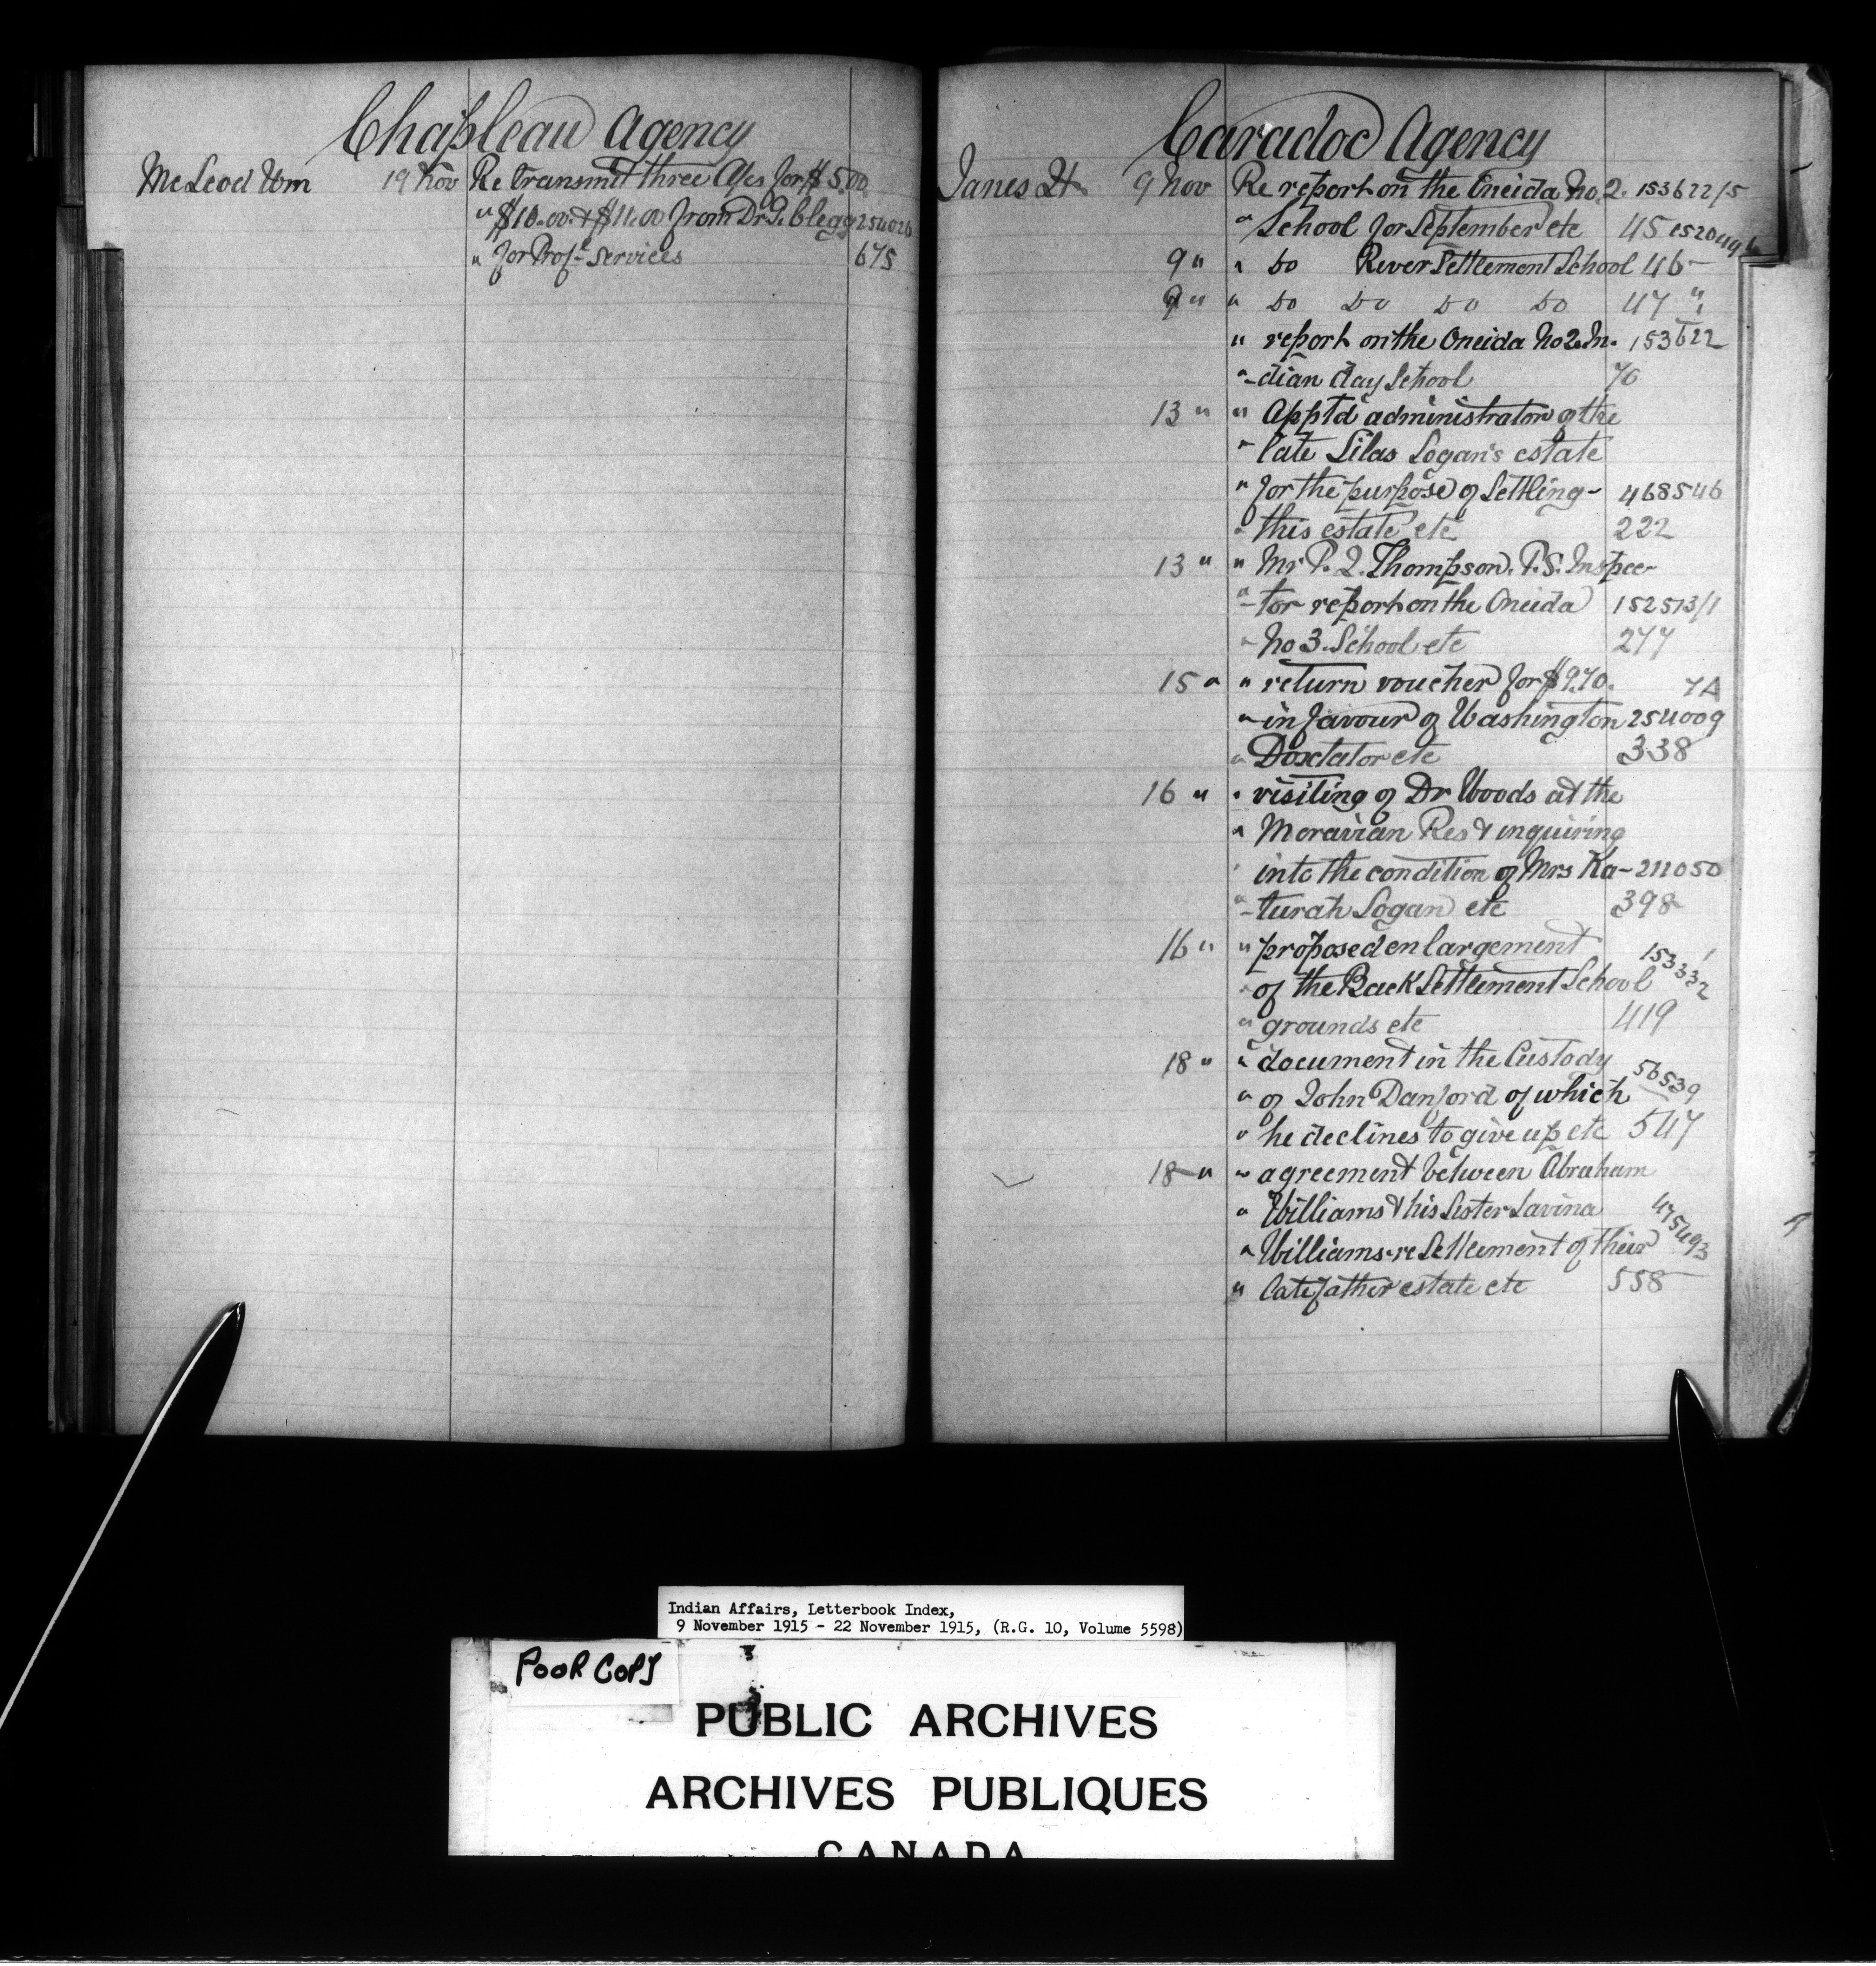 Chapleau Agency
McLeod Wm 19 Nov Re transmit three A/cs for $5.00
" $10.00 & $11.00 from Dr. J. Clegg 254026
" for Prof. Services 675
Caradoc Agency
Janes H 9 Nov Re report on the Oneida No. 2. 153622/5
" School for September etc 45
9 " " Do River Settlement School 46
9 " " Do Do Do Do 47 "
" report on the Oneida No 2. In- 153622
" -dian day School 70
13 " " Apptd administrator of the
" late Silas Logan's estate
" for the purpose of Settling - 468546
" this estate etc 222
13 " " Mr P. J. Thompson. P.S. Inspec-
" -tor report on the Oneida 152513/1
" No 3. School etc 277
15 " " return voucher for $9.70. 7A
" in favour of Washington 254009
" Doxtator etc 338
16 " " visiting of Dr Woods at the
" Moravian Res & inquiring
" into the condition of Mrs Ka- 211050
" -turah Logan etc 398
16 " " proposed enlargement
" of the Back Settlement School 153332
" grounds etc 419
18 " " document in the Custody
" of John Danford of which 56539
" he declines to give up etc 547
18 " " agreement between Abraham
" Williams & his Sister Lavina
" Williams re Settlement of their 475493
" late father estate etc 558
Indian Affairs, Letterbook Index,
9 November 1915 - 22 November 1915, (R.G. 10, Volume 5598)
POOR COPY
PUBLIC ARCHIVES
ARCHIVES PUBLIQUES
CANADA